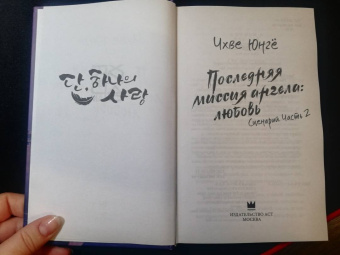 단, 하나의
사랑
Чхве Юнгё
Последняя
миссия ангела:
любовь
Сценарий Часть 2
ИЗДАТЕЛЬСТВО АСТ
МОСКВА